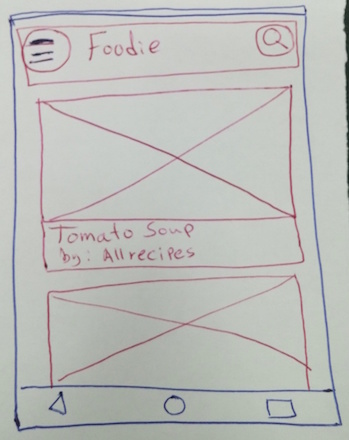 Foodie
Tomato Soup
by: Allrecipes